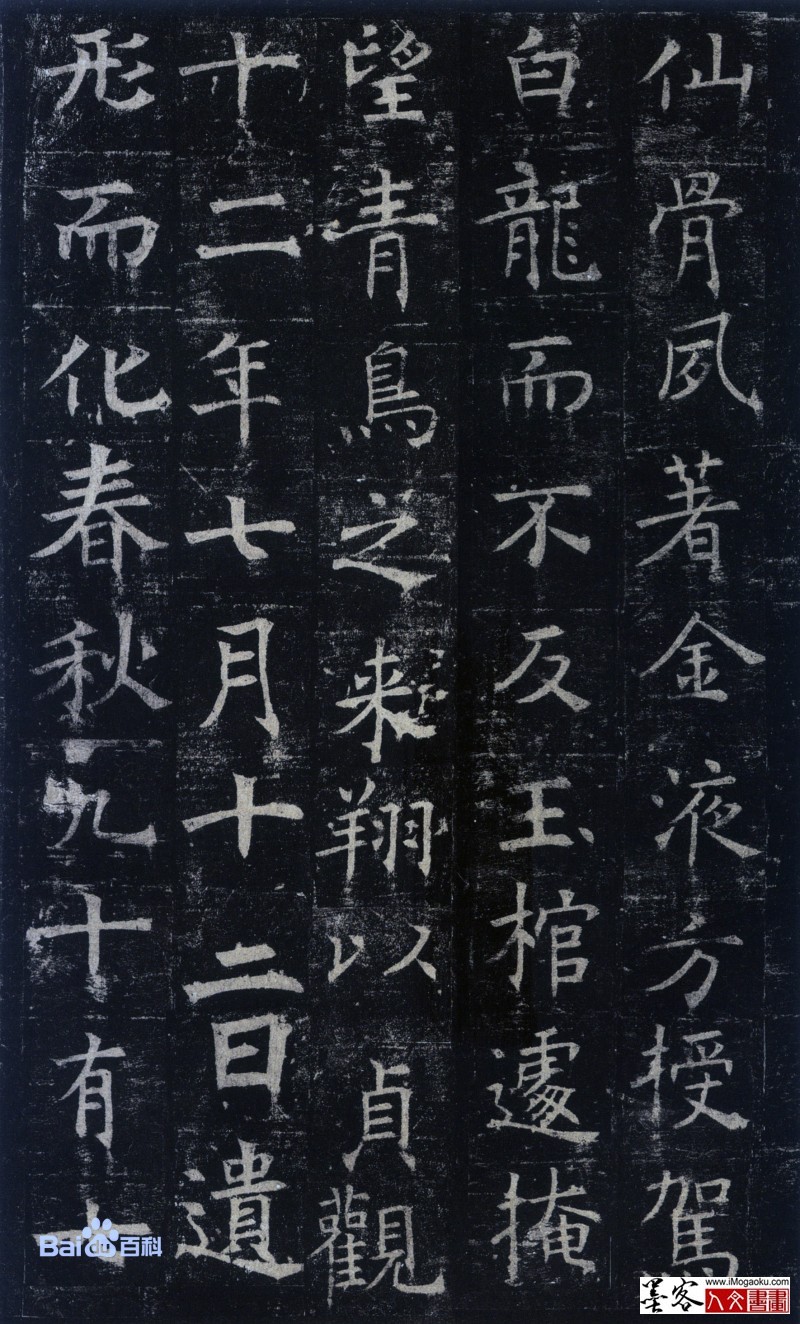 仙骨夙著金液方授駕
白龍而不反玉棺遽掩
望青鳥之来翔以貞觀
十二年七月十二日遺
形而化春秋九十有七
Bai du 百科
墨客
www.iMogaoku.com
人文書畫